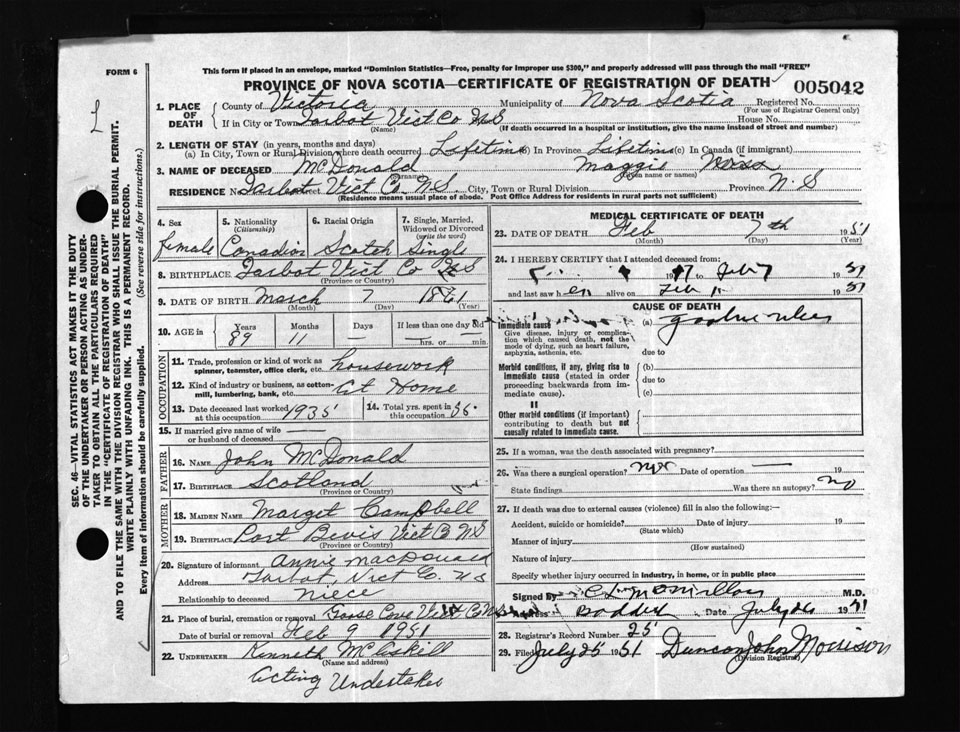 FORM 6
This form if placed in an envelope, marked "Dominion Statistics—Free, penalty for improper use $300," and properly addressed will pass through the mail "FREE"
PROVINCE OF NOVA SCOTIA—CERTIFICATE OF REGISTRATION OF DEATH
005042
1. PLACE OF DEATH
County of Victoria Municipality of Nova Scotia Registered No.
(For use of Registrar General only)
If in City or Town Tarbot Vict Co N S House No.
(Name) (If death occurred in a hospital or institution, give the name instead of street and number)
2. LENGTH OF STAY (in years, months and days)
(a) In City, Town or Rural Division where death occurred Lifetime (b) In Province Lifetime (c) In Canada (if immigrant)
3. NAME OF DECEASED McDonald Maggie
(Surname) (Given name or names)
RESIDENCE No. Tarbot Street Vict Co. N.S. City, Town or Rural Division Province N. S
(Residence means usual place of abode. Post Office Address for residents in rural parts not sufficient)
SEC. 46—VITAL STATISTICS ACT MAKES IT THE DUTY
OF THE UNDERTAKER OR PERSON ACTING AS UNDER-
TAKER TO OBTAIN ALL THE PARTICULARS REQUIRED
IN THE "CERTIFICATE OF REGISTRATION OF DEATH"
AND TO FILE THE SAME WITH THE DIVISION REGISTRAR WHO SHALL ISSUE THE BURIAL PERMIT.
WRITE PLAINLY WITH UNFADING INK. THIS IS A PERMANENT RECORD.
Every item of information should be carefully supplied. (See reverse side for instructions.)
4. Sex
female
5. Nationality
(Citizenship)
Canadian
6. Racial Origin
Scotch
7. Single, Married, Widowed or Divorced
(write the word)
Single
8. BIRTHPLACE Tarbot Vict Co N S
(Province or Country)
9. DATE OF BIRTH March 7 1861
(Month) (Day) (Year)
10. AGE in Years Months Days If less than one day old
89 11 — — hrs. or — min.
OCCUPATION
11. Trade, profession or kind of work as spinner, teamster, office clerk, etc. housework
12. Kind of industry or business, as cotton-mill, lumbering, bank, etc. At Home
13. Date deceased last worked at this occupation 1935
14. Total yrs. spent in this occupation
15. If married give name of wife or husband of deceased —
FATHER
16. NAME John McDonald
17. BIRTHPLACE Scotland
(Province or Country)
MOTHER
18. MAIDEN NAME Marget Campbell
19. BIRTHPLACE Port Bevis Vict Co N S
(Province or Country)
20. Signature of informant Annie MacDonald
Address Tarbot, Vict Co. N S
Relationship to deceased Niece
21. Place of burial, cremation or removal Goose Cove Vict Co NS
Date of burial or removal Feb 9 1951
22. UNDERTAKER Kenneth McAskill
(Name and address)
Acting Undertaker
MEDICAL CERTIFICATE OF DEATH
23. DATE OF DEATH Feb 7th 1951
(Month) (Day) (Year)
24. I HEREBY CERTIFY that I attended deceased from
to Feb 7 1951
and last saw her alive on Feb 1951
CAUSE OF DEATH
Immediate cause
Give disease, injury or complication which caused death, not the mode of dying, such as heart failure, asphyxia, asthenia, etc.
(a)
due to
Morbid conditions, if any, giving rise to immediate cause (stated in order proceeding backwards from immediate cause).
(b)
due to
(c)
II
Other morbid conditions (if important) contributing to death but not causally related to immediate cause.
25. If a woman, was the death associated with pregnancy?
26. Was there a surgical operation? Date of operation — 19
State findings Was there an autopsy? no
27. If death was due to external causes (violence) fill in also the following:—
Accident, suicide or homicide? Date of injury 19
(State which)
Manner of injury
(How sustained)
Nature of injury
Specify whether injury occurred in industry, in home, or in public place
Signed By C L McMillan M.D.
Address Baddeck Date July 26 1951
28. Registrar's Record Number 25
29. Filed July 25 1951 Duncan John Morrison
(Division Registrar)